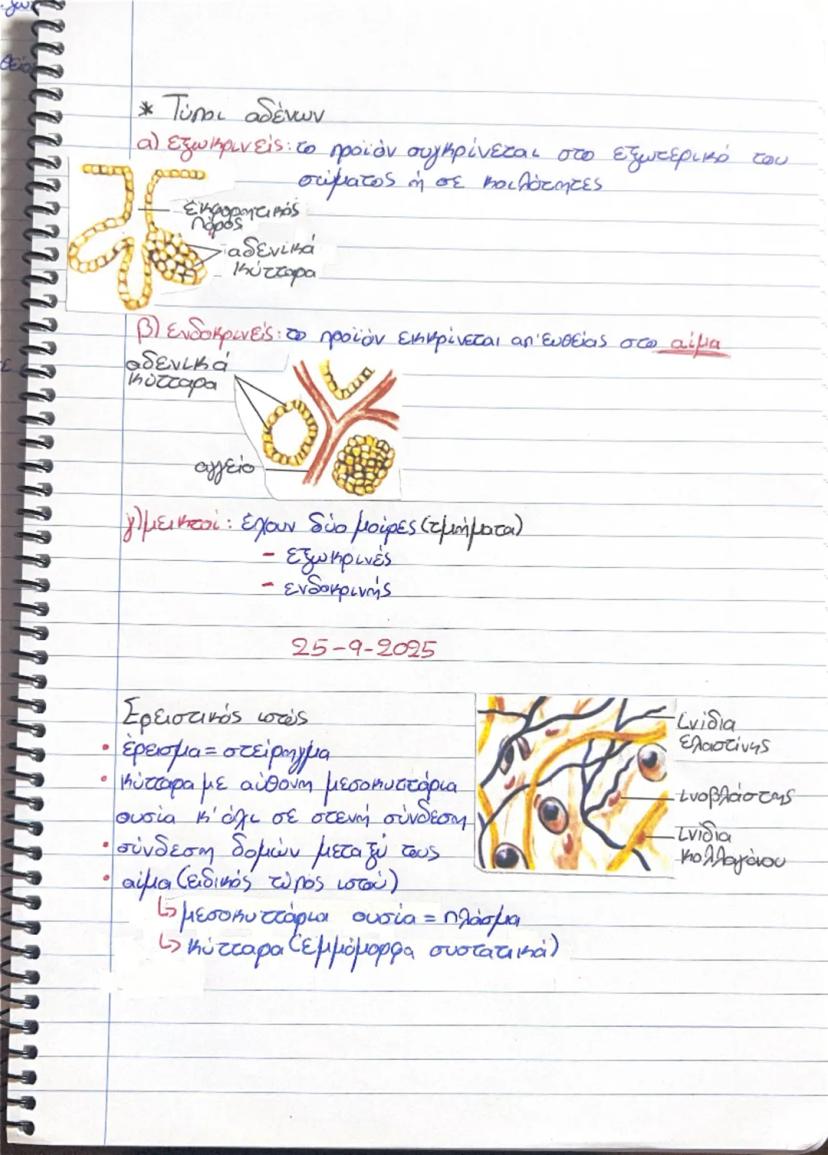 * Τύποι αδένων
α) εξωκρινείς: το προϊόν συγκρίνεται στο εξωτερικό του
σώματος ή σε κοιλότητες
εκφορητικός
πόρος
αδενικά
κύτταρα
β) ενδοκρινείς: το προϊόν εκκρίνεται απ' ευθείας στο αίμα
αδενικά
κύτταρα
αγγείο
γ) μεικτοί: έχουν δύο μοίρες (τμήματα)
- εξωκρινές
- ενδοκρινής
25-9-2025
Ερειστικός ιστός
• έρεισμα = στείρηγμα
• κύτταρα με αύθονη μεσοκυττάρια
ουσία κ' όχι σε στενή σύνδεση
• σύνδεση δομών μεταξύ τους
• αίμα (ειδικός τύπός ιστού)
↳ μεσοκυττάρια ουσία = πλάσμα
↳ κύτταρα (έμμόμορφα συστατικά)
ινίδια
ελαστίνης
ινοβλάστης
ινίδια
κολλαγόνου